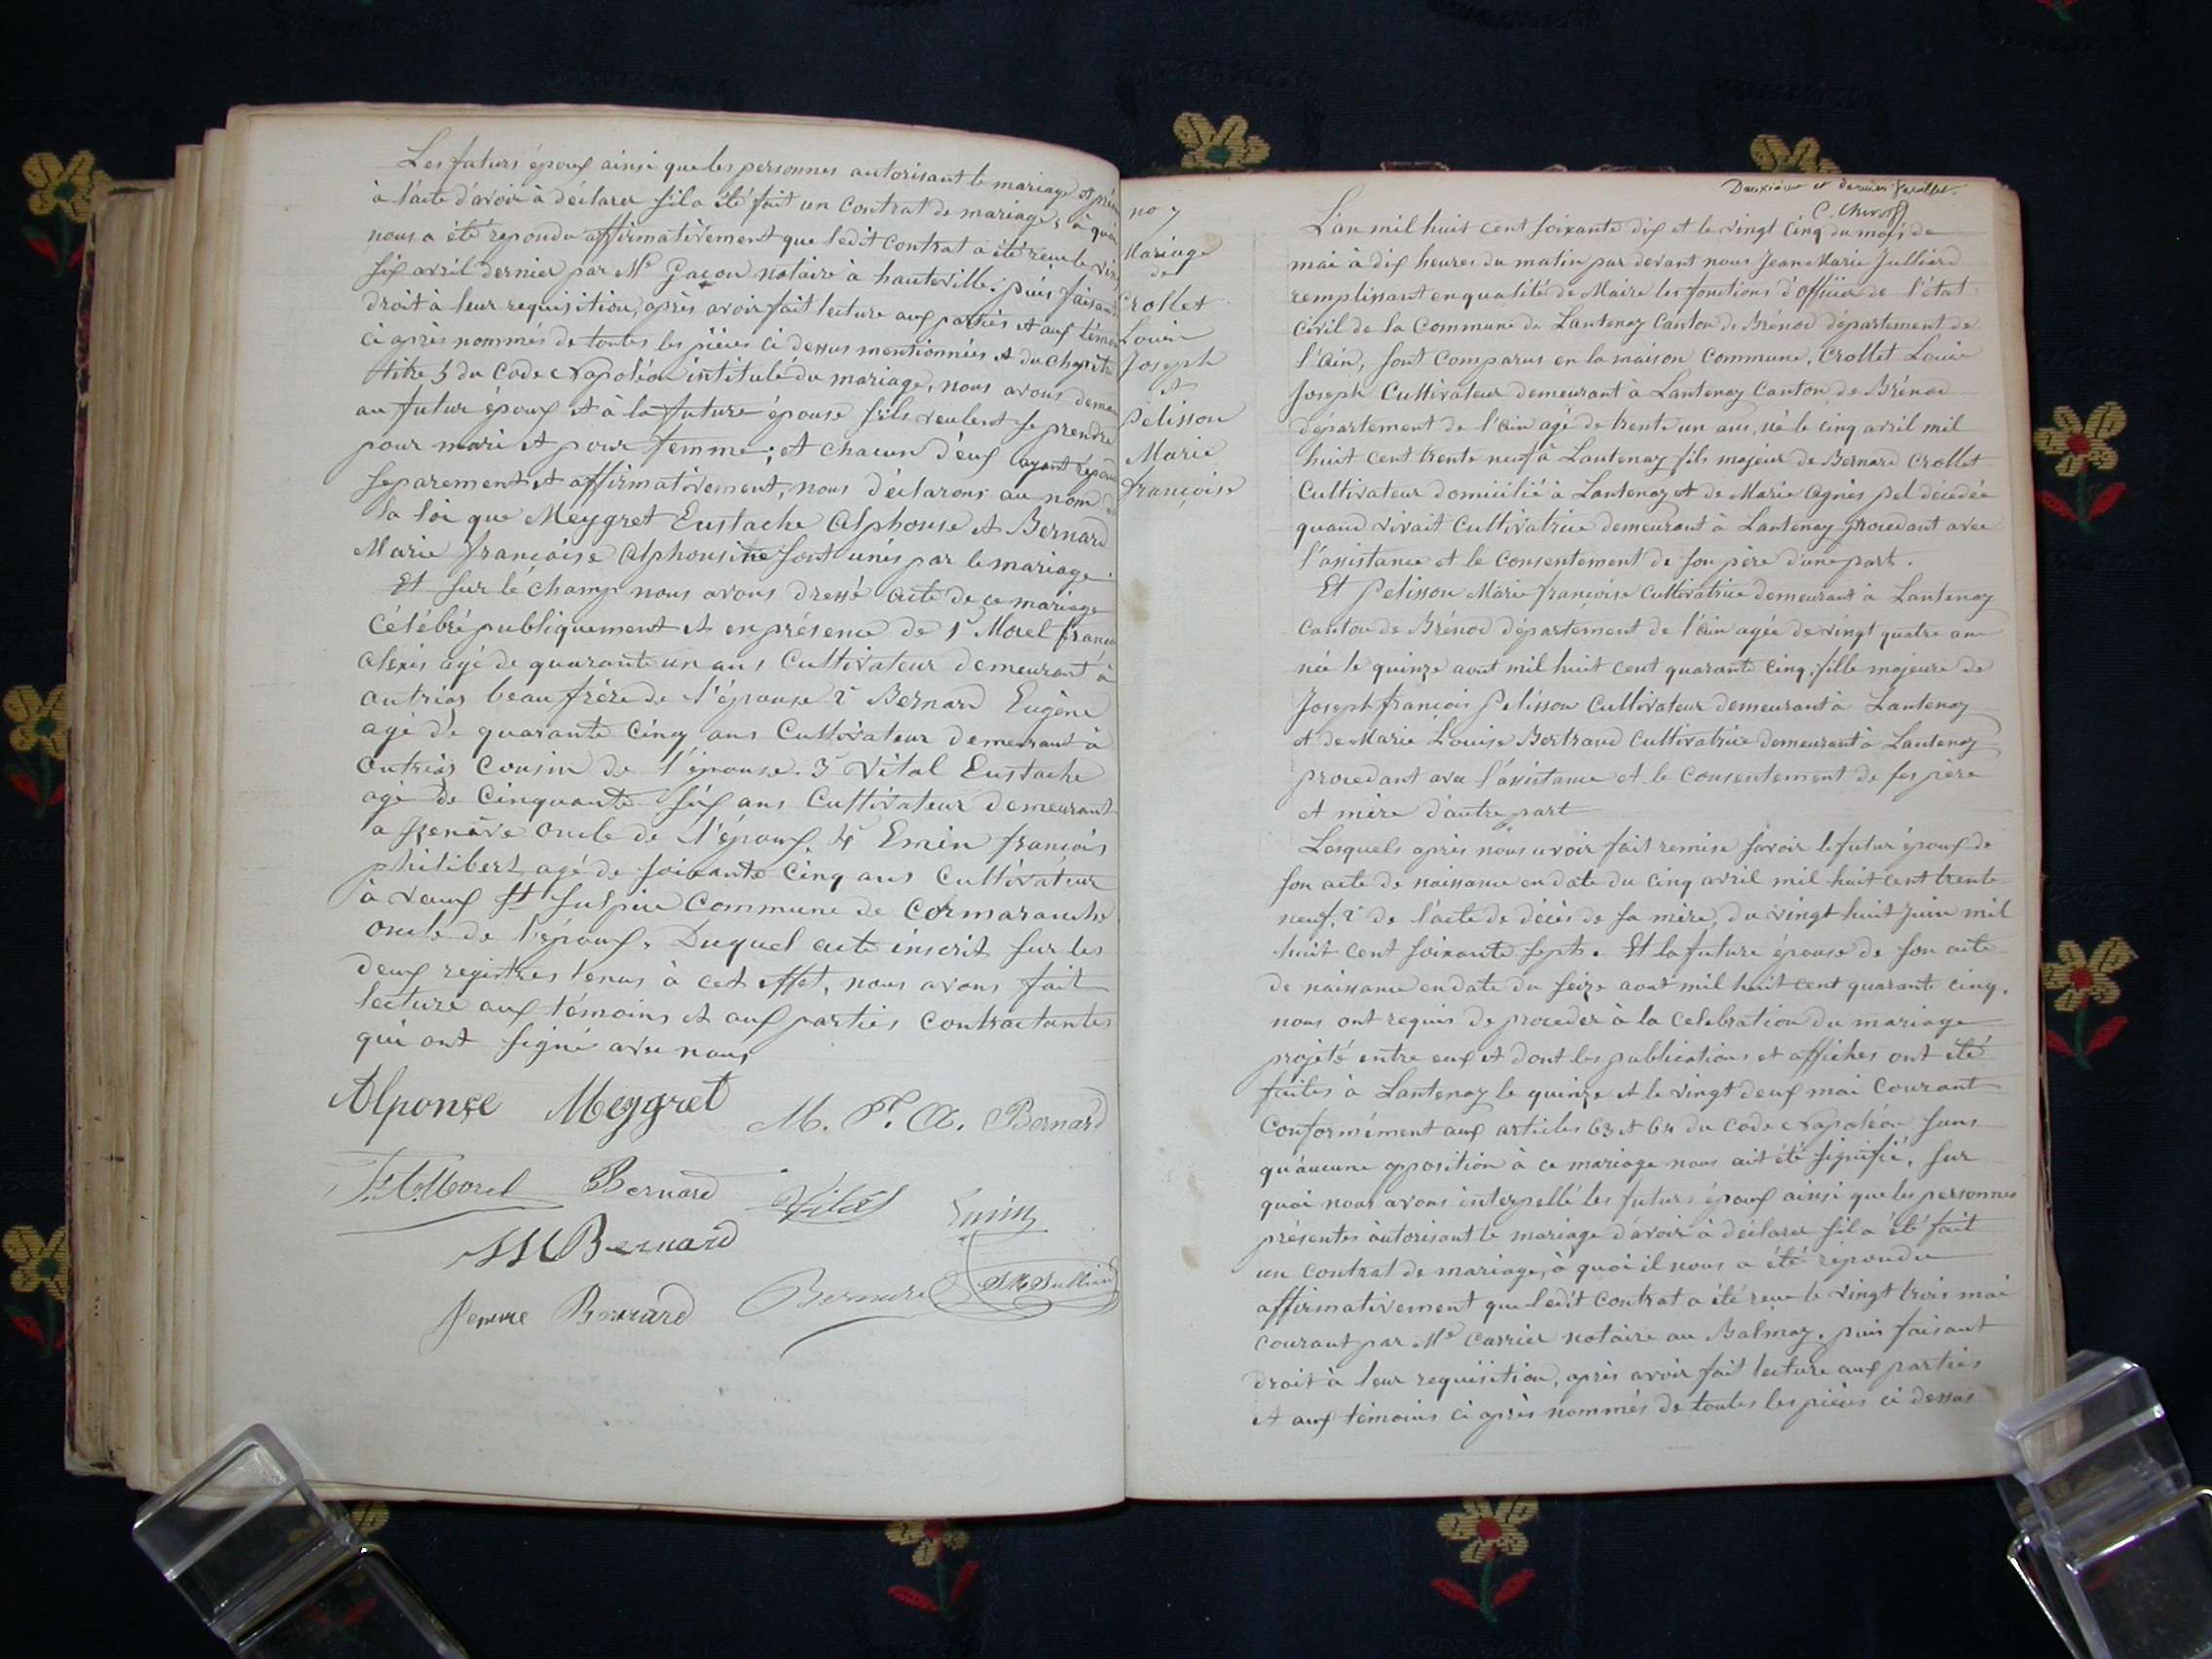 Les futurs époux ainsi que les personnes autorisant le mariage et
à l'acte d'avoir à déclarer s'il a été fait un contrat de mariage, à quoi
nous a été repondu affirmativement que ledit contrat a été reçu le
six avril dernier par Me Gacon notaire à hauteville. puis faisant
droit à leur requisition, après avoir fait lecture aux parties et aux témoins
ci après nommés de toutes les pièces ci dessus mentionnées et du chapitre
titre 5 du Code Napoléon intitulé du mariage, nous avons deman
au futur époux et à la future épouse s'ils veulent se prendre
pour mari et pour femme; et chacun d'eux ayant repon
separement et affirmativement, nous déclarons au nom de
la loi que Meygret Eustache Alphonse et Bernard
Marie françoise Alphonsine sont unis par le mariage
Et sur le champ nous avons dressé acte de ce mariage
Célébré publiquement et en présence de 1° Morel françois
alexis agé de quarante un ans Cultivateur demeurant à
outriaz beau frère de l'épouse 2° Bernard Eugène
agé de quarante cinq ans Cultivateur demeurant à
Outriaz Cousin de l'épouse. 3° Vital Eustache
agé de Cinquante six ans Cultivateur demeurant
a Izenave oncle de l'époux. 4° Emin françois
philibert agé de soixante Cinq ans Cultivateur
à vaux St Sulpice Commune de Cormaranche
Oncle de l'époux. Duquel acte inscrit sur les
deux registres tenus à cet effet, nous avons fait
lecture aux témoins et aux parties contractantes
qui ont signé avec nous
Alponse Meygret M. F. A. Bernard
Morel Bernard Vital Emin
Bernard
Bernard Bernard JM Julliard
no 7
Mariage
de
Crollet
Louis
Joseph
et
Pelisson
Marie
françoise
Deuxième et dernier feuillet.
L'an mil huit cent soixante dix et le vingt cinq du mois de
mai à dix heures du matin par devant nous Jean Marie Julliard
remplissant en qualité de Maire les fonctions d'officier de l'état
civil de la Commune de Lantenay Canton de Brénod département de
l'Ain, sont comparus en la maison Commune, Crollet Louis
Joseph Cultivateur demeurant à Lantenay Canton de Brénod
département de l'Ain agé de trente un ans, né le cinq avril mil
huit cent trente neuf à Lantenay fils majeur de Bernard Crollet
Cultivateur domicilié à Lantenay et de Marie Agnès pel décédée
quand vivait Cultivatrice demeurant à Lantenay procedant avec
l'assistance et le consentement de son père d'une part.
Et Pelisson Marie françoise Cultivatrice demeurant à Lantenay
Canton de Brénod département de l'Ain agée de vingt quatre ans
née le quinze aout mil huit cent quarante cinq, fille majeure de
Joseph françois Pelisson Cultivateur demeurant à Lantenay
et de Marie Louise Bertrand Cultivatrice demeurant à Lantenay
procedant avec l'assistance et le consentement de ses père
et mère d'autre part
Lesquels après nous avoir fait remise savoir le futur époux de
son acte de naissance en date du cinq avril mil huit cent trente
neuf. 2° de l'acte de décès de sa mère, du vingt huit juin mil
huit cent soixante sept. Et la future épouse de son acte
de naissance en date du seize aout mil huit cent quarante cinq.
nous ont requis de proceder à la celebration du mariage
projeté entre eux et dont les publications et affiches ont été
faites à Lantenay le quinze et le vingt deux mai Courant
Conformément aux articles 63 et 64 du Code Napoléon sans
qu'aucune opposition à ce mariage nous ait été signifié, sur
quoi nous avons interpellé les futurs époux ainsi que les personnes
présentes autorisant le mariage d'avoir à déclarer s'il a été fait
un contrat de mariage, à quoi il nous a été répondu
affirmativement que ledit contrat a été reçu le vingt trois mai
courant par Me Carrier notaire au Balmay. puis faisant
droit à leur requisition, après avoir fait lecture aux parties
et aux témoins ci après nommés de toutes les pièces ci dessus